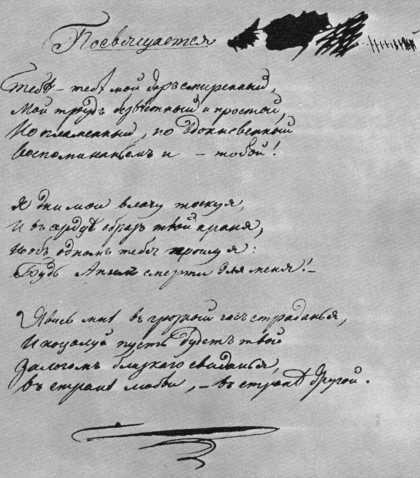 Посвящается
Тебѣ – тебѣ мой даръ смиренный,
Мой трудъ безвѣстный и простой,
Но пламенный, но вдохновенный
Воспоминаньемъ и – тобой!
Я дни мои влачу тоскуя,
И въ сердцѣ образъ твой храня,
Но объ одномъ тебя прошу я:
Будь Ангелъ смерти для меня! –
Явись мнѣ въ грозный часъ страданья,
И поцѣлуй пусть будетъ твой
Залогомъ близкаго свиданья,
Въ странѣ любви, – въ странѣ другой.